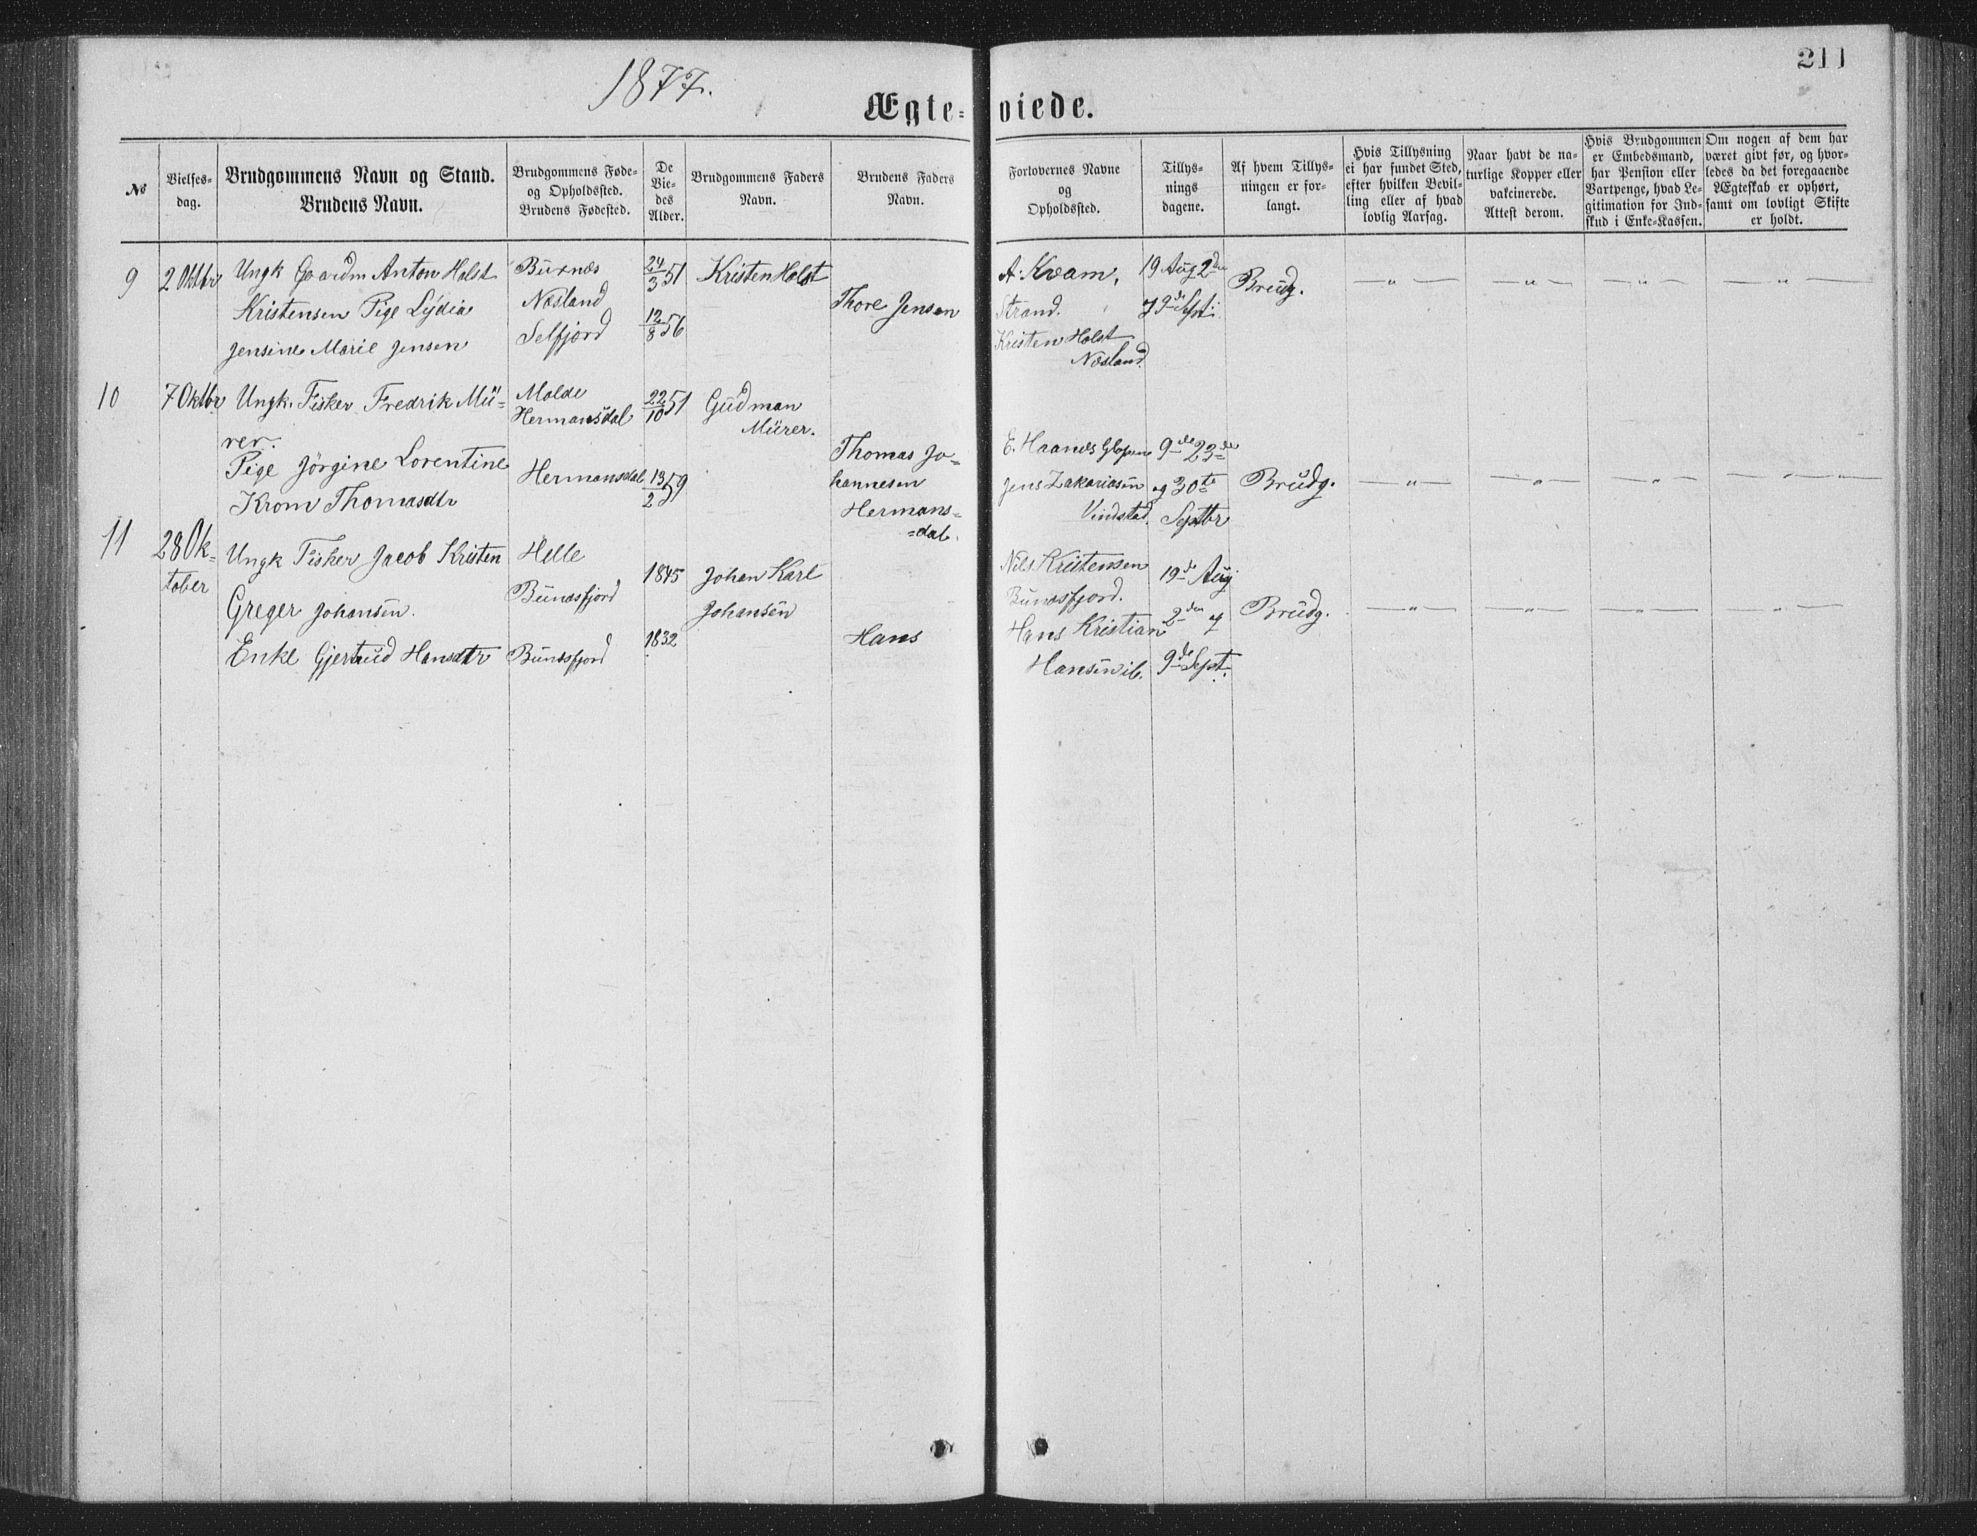 1877.
211
Ægte-viede.
No
Vielses-
dag.
Brudgommens Navn og Stand.
Brudens Navn.
Brudgommens Føde-
og Opholdssted.
Brudens Fødested.
De
Vie-
des
Alder.
Brudgommens Faders
Navn.
Brudens Faders
Navn.
Forlovernes Navne
og
Opholdssted.
Tillys-
nings
dagene.
Af hvem Tillys-
ningen er for-
langt.
Hvis Tillysning
ei har fundet Sted,
efter hvilken Bevil-
ling eller af hvad
lovlig Aarsag.
Naar havt de na-
turlige Kopper eller
vakcinerede.
Attest derom.
Hvis Brudgommen
er Embedsmand,
har Pension eller
Vartpenge, hvad Le-
gitimation for Ind-
skud i Enke-Kassen.
Om nogen af dem har
været givt før, og hvor-
ledes da det foregaaende
Ægteskab er ophørt,
samt om lovligt Skifte
er holdt.
9
2 Oktbr
Ungk Gaardm Anton Holst
Kristensen Pige Lydia
Jensine Marie Jensen
Burnæs
Næsland
Selfjord
24/3 51
12/8 56
Kristen Holst
Thore Jensen
A. Kvam,
Strand.
Kristen Holst
Næsland.
19 Aug 2den
9de Sept:
Brudg.
— " — — " — — " — — " —
10
7 Oktbr
Ungk. Fisker Fredrik Mü-
rer.
Pige Jörgine Lorentine
Krom Thomasdtr
Molde
Hermansdal
Hermansdal
22/10 51
13/2 59
Gudman
Mürer.
Thomas Jo-
hannesen
Hermans-
-dal.
E. Haanes
Jens Zakariasen
Vindstad.
9de 23de
og 30te
Septbr
Brudg.
— " — — " — — " — — " —
11
28 Ok-
tober
Ungk Fisker Jacob Kristen
Greger Johansen.
Enke Gjertrud Hansdtr
Helle
Bunesfjord
Bunesfjord
1845
1832
Johan Karl
Johansen
Hans
Nils Kristensen
Bunesfjord.
Hans Kristian
Hansen ib.
19de Aug
2den og
9de Sept.
Brudg.
— " — — " — — " — — " —